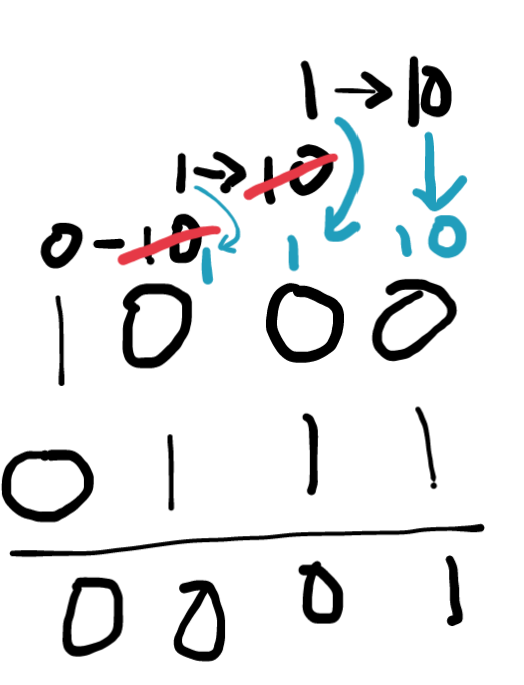 1 → 10
1 → 10
0 - 10
1 1 10
1 0 0 0
0 1 1 1
0 0 0 1